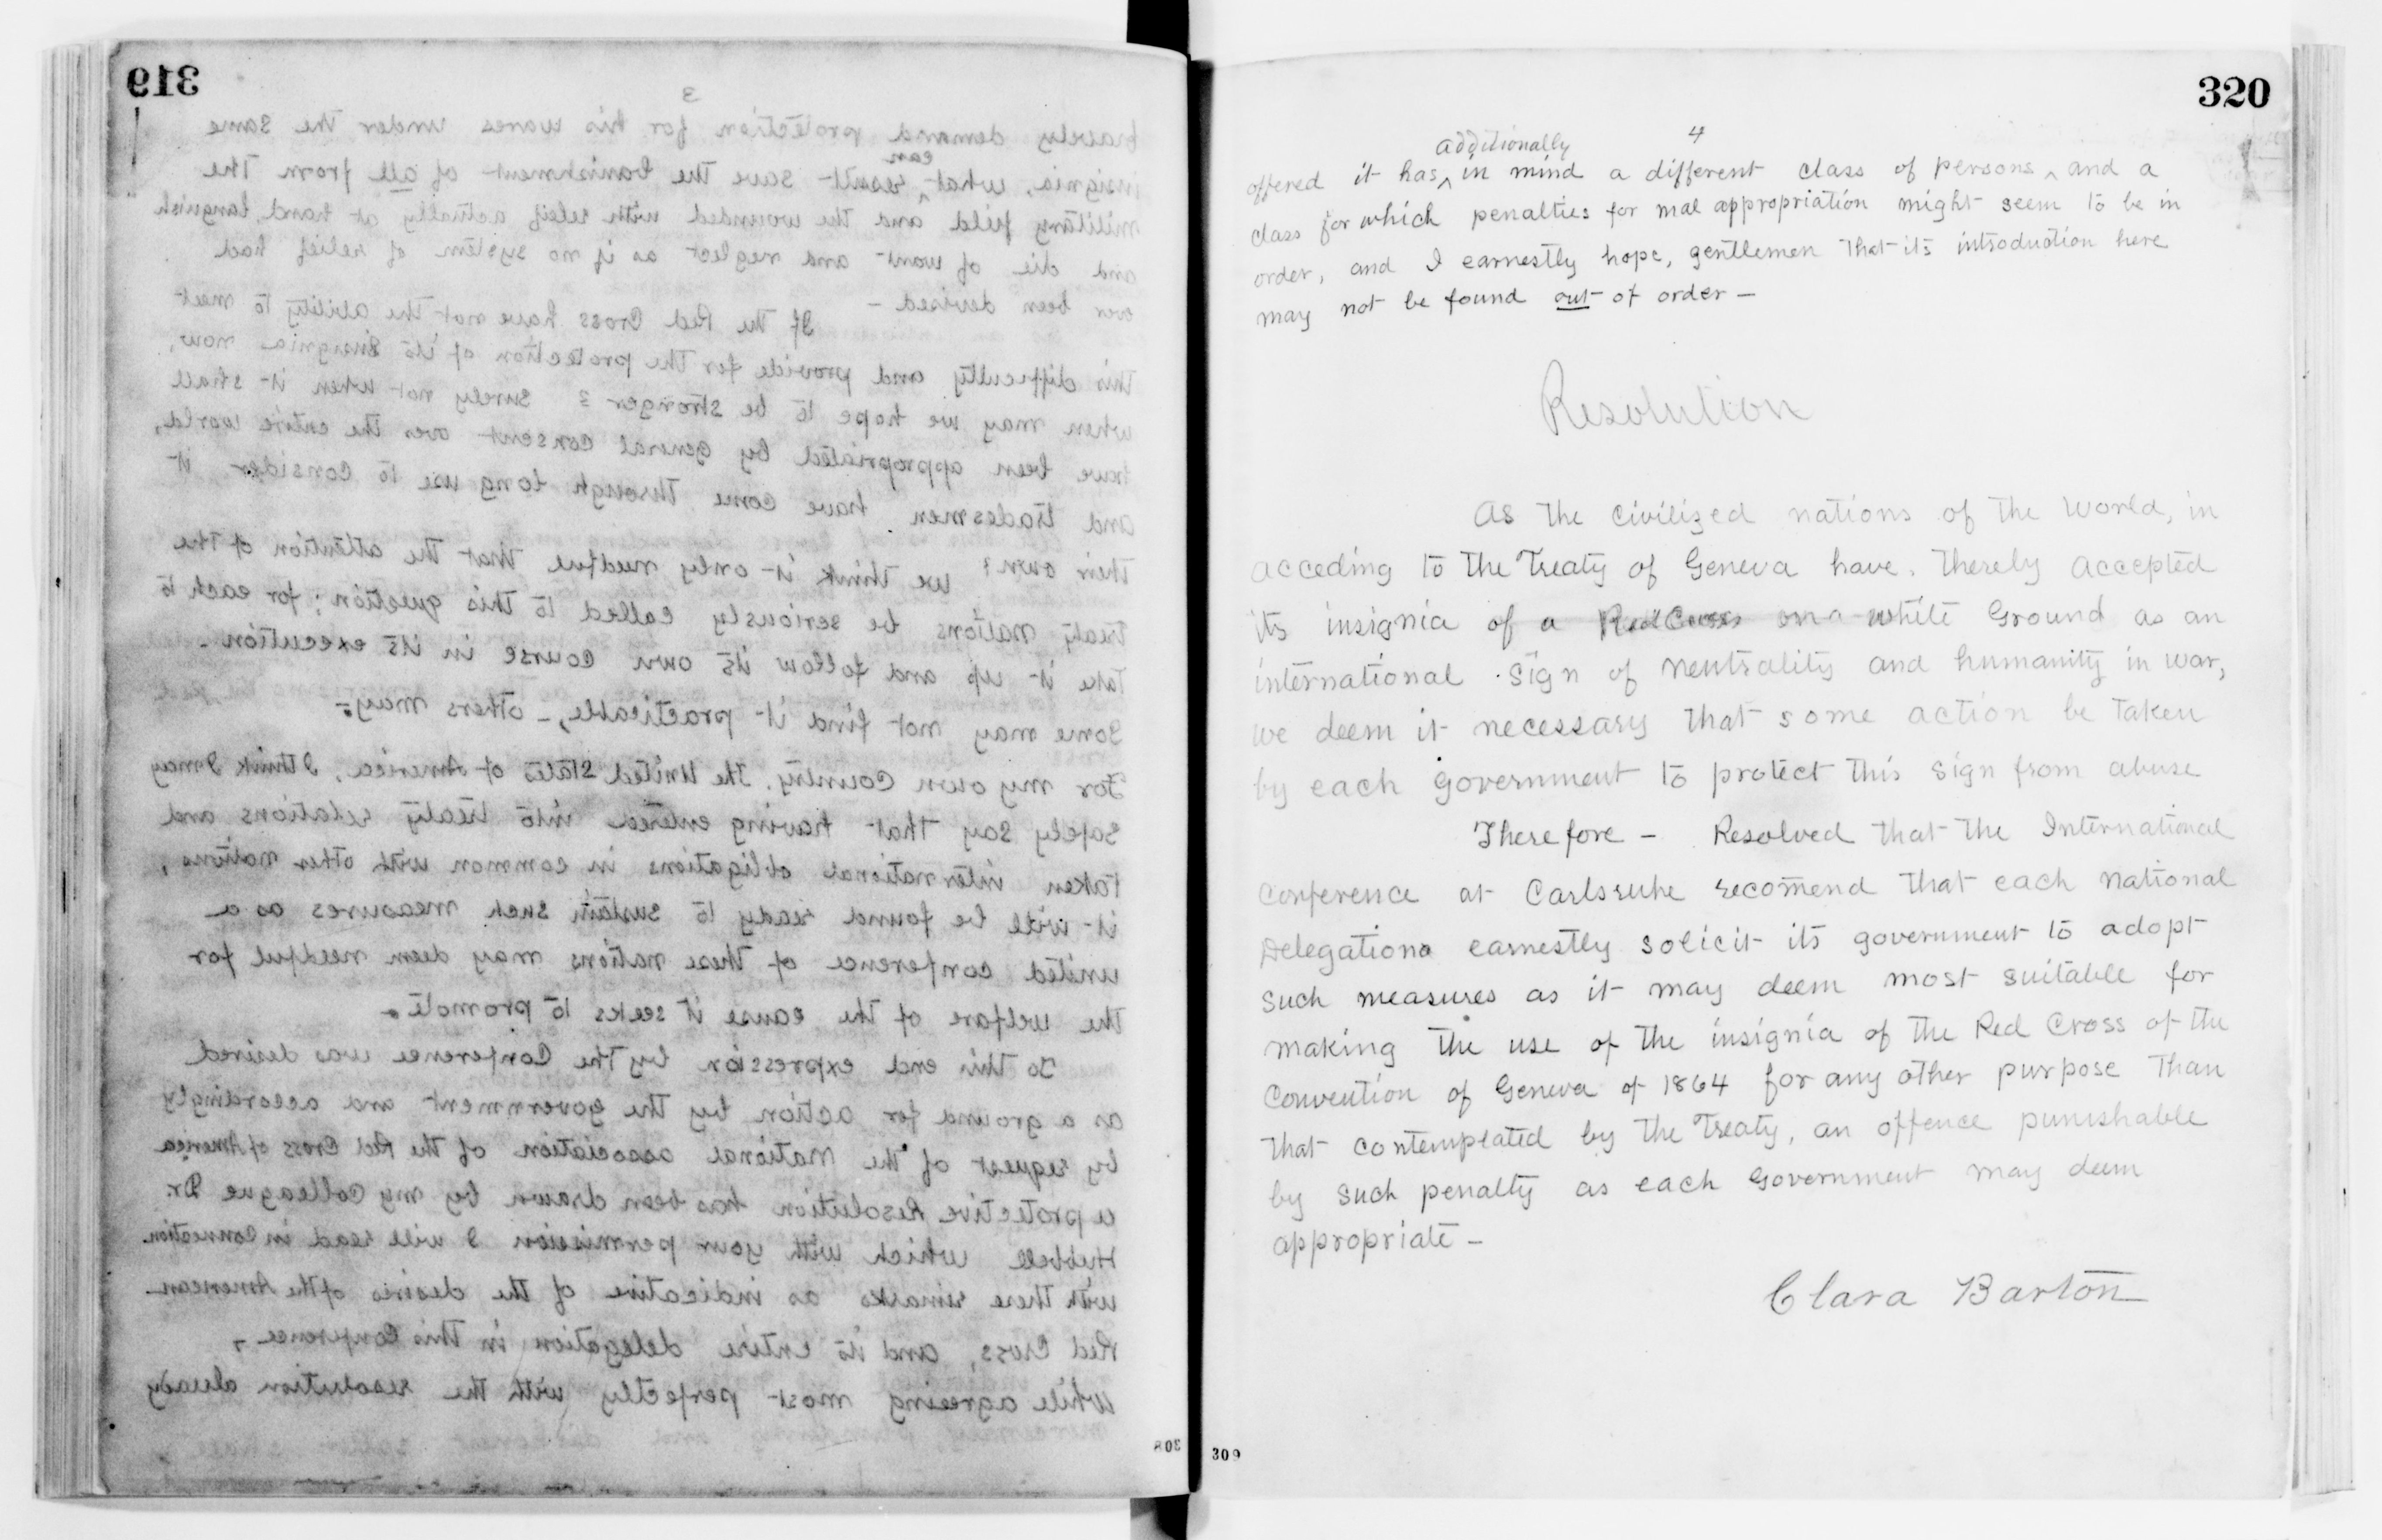 319
3
bravely demand protection for his wares under the same
can
insignia, what ‸ result save the banishment of all from the
military field and the wounded with releif actually at hand, languish
and die of want and neglect as if no system of relief had
ever been devised – If the Red Cross have not the ability to meet
this difficulty and provide for the protection of its insignia now,
when may we hope to be stronger? surely not when it shall
have been appropriated by general consent over the entire world,
and tradesmen have come through long use to consider it
their own? we think it only needful that the attention of the
treaty nations be seriously called to this question; for each to
take it up and follow its own course in its execution –
some may not find it practicable, – others may –
For my own country, the United States of America, I think I may
safely say that having entered into treaty relations and
taken international obligations in common with other nations,
it will be found ready to sustain such measures as a
united conference of these nations may deem needful for
the welfare of the cause it seeks to promote.
To this end expression by the Conference was desired
as a ground for action by the government and accordingly
by request of the National association of the Red Cross of America
a protective Resolution has been drawn by my colleague Dr.
Hubbell which with your permission I will read in connection
with these remarks as indicative of the desires of the American
Red Cross, and its entire delegation in this Conference –
while agreeing most perfectly with the resolution already
308
320
4
additionally
offered it has ‸ in mind a different class of persons ‸ and a
class for which penalties for mal appropriation might seem to be in
order, and I earnestly hope, gentlemen that its introduction here
may not be found out of order –
Resolution
As the civilized nations of the world, in
acceding to the Treaty of Geneva have thereby accepted
its insignia of a Red Cross on a white Ground as an
international sign of neutrality and humanity in war,
we deem it necessary that some action be taken
by each government to protect this sign from abuse
Therefore – Resolved that the International
Conference at Carlsruhe recomend that each national
Delegation earnestly solicit its government to adopt
such measures as it may deem most suitable for
making the use of the insignia of the Red Cross of the
Convention of Geneva of 1864 for any other purpose than
that contemplated by the Treaty, an offence punishable
by such penalty as each Government may deem
appropriate –
Clara Barton
309